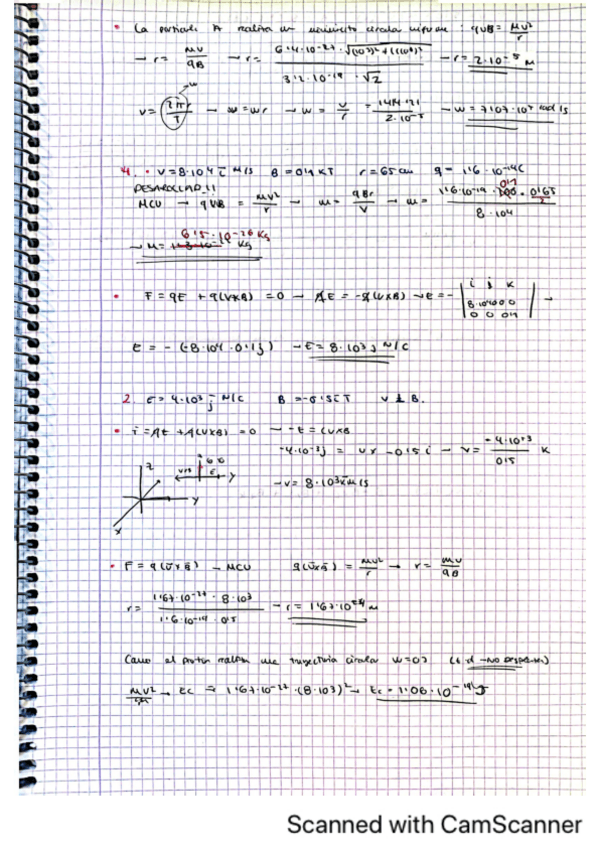 • La partícula A realiza un movimiento circular uniforme: qvB = mv²/r
→ r = mv/qB → r = 6'4·10⁻²⁷·√((10³)²+(10⁶)²) / 3'2·10⁻¹⁹·√2 → r = 2·10⁻⁵ m
v = 2πr/T → v = wr → w = v/r = / 2·10⁻⁵ → w = 7'07·10⁷ rad/s
4. • v = 8·10⁴ i m/s B = 0'1 k T r = 65 cm q = 1'6·10⁻¹⁹C
DESARROLLADO!!
MCU → qvB = mv²/r → m = qBr/v → m = 1'6·10⁻¹⁹·0'1·0'65 / 8·10⁴
→ m = 6'5·10⁻²⁶ kg
• F = qE + q(v×B) = 0 → qE = -q(v×B) → E = - | i j k
8·10⁴ 0 0
0 0 0'1 | →
E = - (-8·10⁴·0'1j) → E = 8·10³ j N/C
2. E = 4·10³ j N/C B = -0'5 i T v ⊥ B.
• F = qE + q(v×B) = 0 → -E = (v×B
-4·10⁻³j = v × -0'5 i → v = -4·10⁺³ / 0'5 k
→ v = 8·10³ k m/s
Z
Y
X
v×B
E
Y
• F = q(v×B) → MCU q(v×B) = mv²/r → r = mv/qB
r = 1'67·10⁻²⁷·8·10³ / 1'6·10⁻¹⁹·0'5 → r = 1'67·10⁻⁴ m
Como el protón realiza una trayectoria circular W = 0J
mv² → Ec = 1'67·10⁻²⁷·(8·10³)² → Ec = 1'06·10⁻¹⁹ J
Scanned with CamScanner